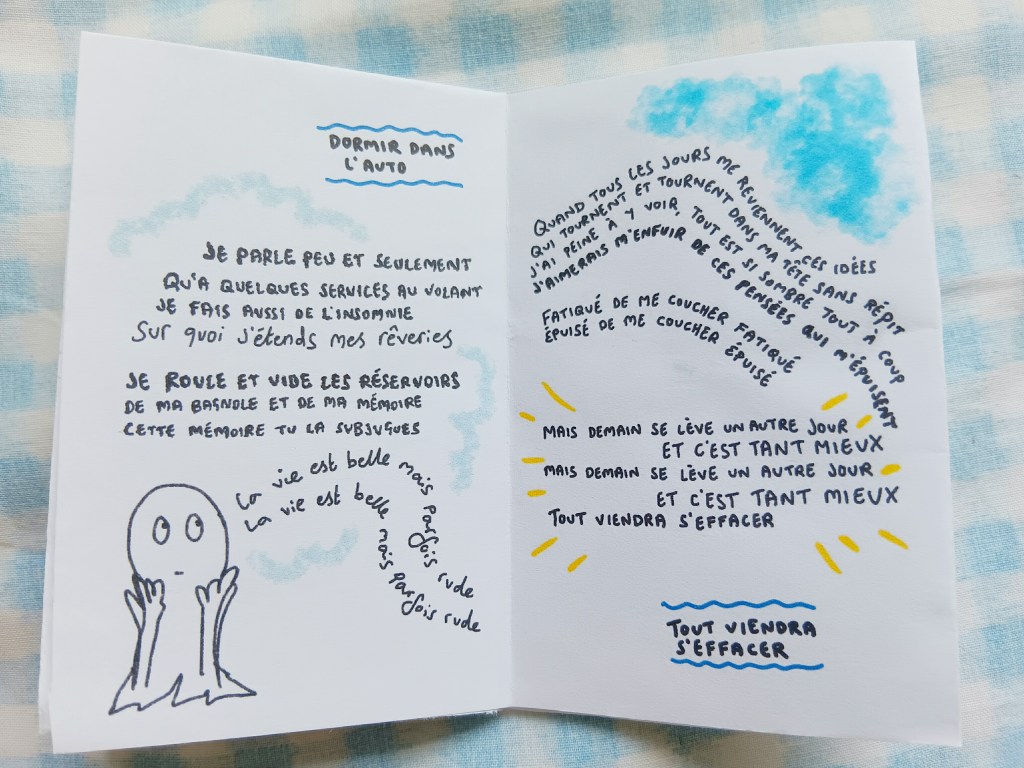 DORMIR DANS
L'AUTO
JE PARLE PEU ET SEULEMENT
QU'À QUELQUES SERVICES AU VOLANT
JE FAIS AUSSI DE L'INSOMNIE
Sur quoi j'étends mes rêveries
JE ROULE ET VIDE LES RÉSERVOIRS
DE MA BAGNOLE ET DE MA MÉMOIRE
CETTE MÉMOIRE TU LA SUBJUGUES
La vie est belle mais parfois rude
La vie est belle mais parfois rude
QUAND TOUS LES JOURS ME REVIENNENT CES IDÉES
QUI TOURNENT ET TOURNENT DANS MA TÊTE SANS RÉPIT
J'AI PEINE À Y VOIR, TOUT EST SI SOMBRE TOUT À COUP
J'AIMERAIS M'ENFUIR DE CES PENSÉES QUI M'ÉPUISENT
FATIQUÉ DE ME COUCHER FATIQUÉ
ÉPUISÉ DE ME COUCHER ÉPUISÉ
MAIS DEMAIN SE LÈVE UN AUTRE JOUR
ET C'EST TANT MIEUX
MAIS DEMAIN SE LÈVE UN AUTRE JOUR
ET C'EST TANT MIEUX
TOUT VIENDRA S'EFFACER
TOUT VIENDRA
S'EFFACER